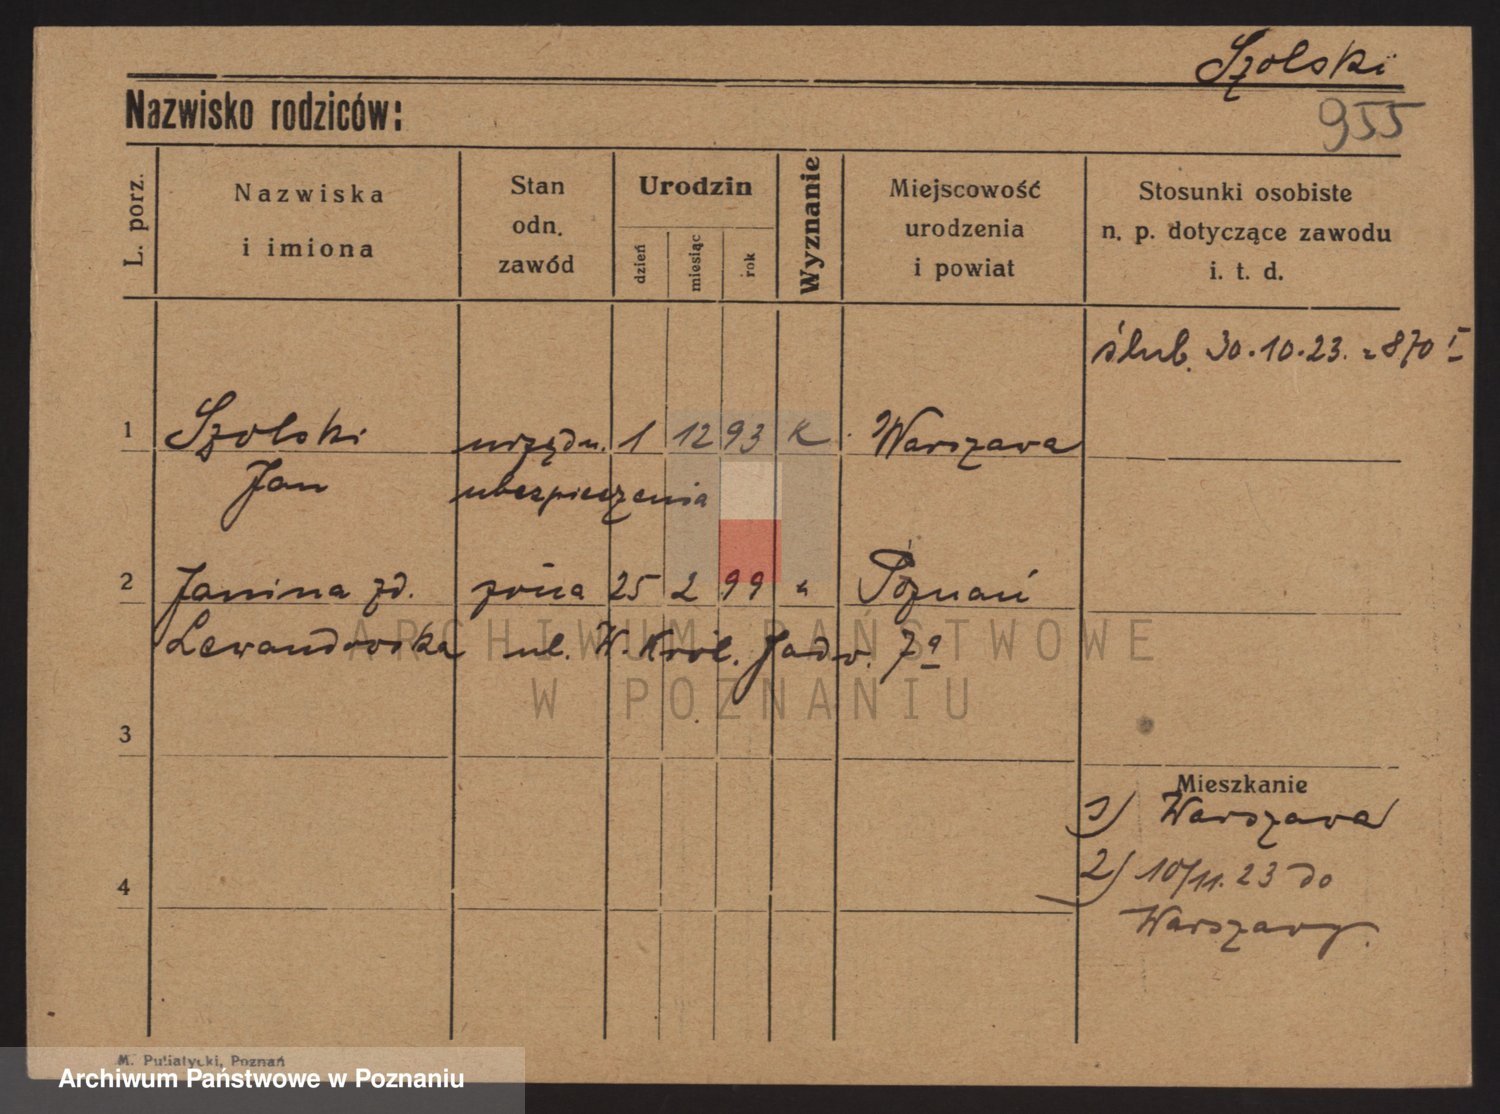 Szolski
955
Nazwisko rodziców:
L. porz.
Nazwiska
i imiona
Stan
odn.
zawód
Urodzin
dzień
miesiąc
rok
Wyznanie
Miejscowość
urodzenia
i powiat
Stosunki osobiste
n. p. dotyczące zawodu
i. t. d.
ślub. 30.10.23. 870 I
1 Szolski urzędn. 1 12 93 K Warszawa
Jan ubezpieczenia
2 Janina zd. żona 25 2 99 " Poznań
Lewandowska ul. W. Król. Jadw. 7a
ARCHIWUM PAŃSTWOWE
W POZNANIU
3
Mieszkanie
1) Warszawa
4
2) 10/11.23 do
Warszawy.
M. Putiatycki, Poznań
Archiwum Państwowe w Poznaniu